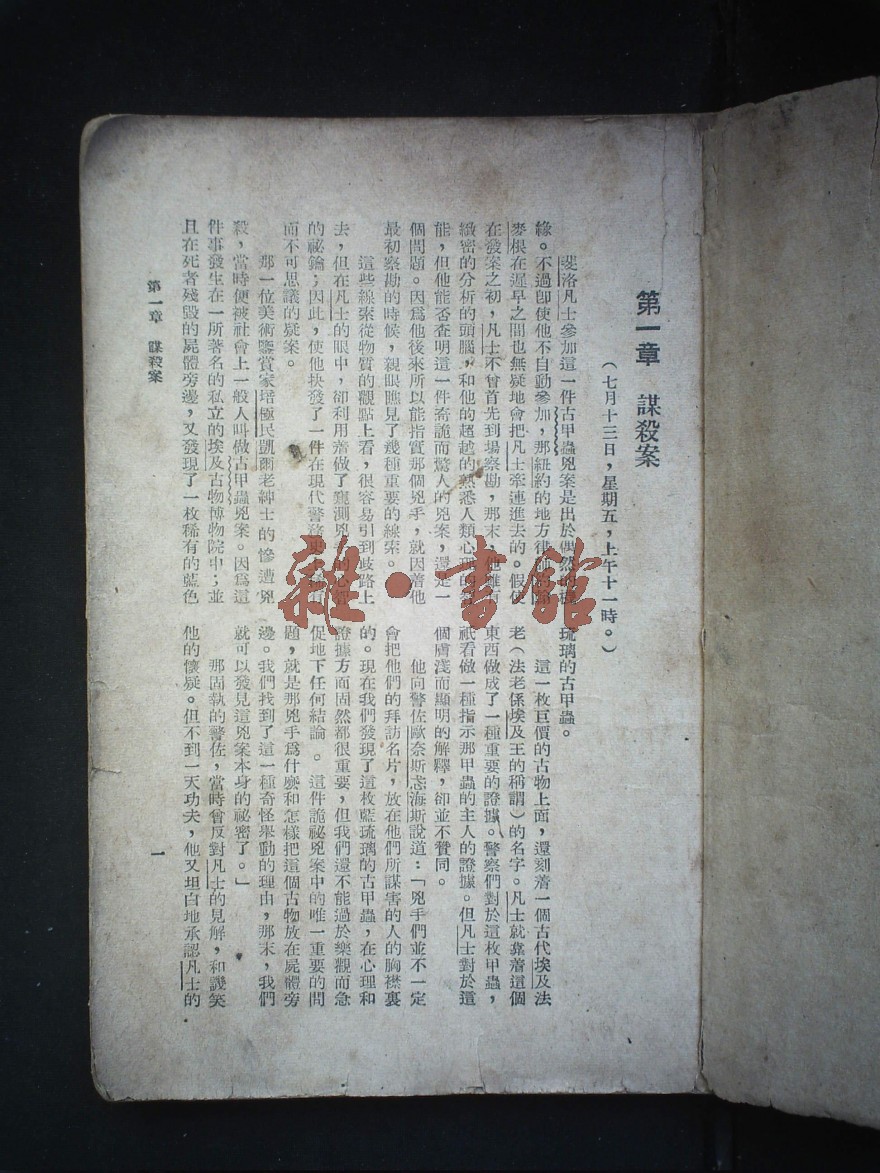 第一章 謀殺案
(七月十三日，星期五，上午十一時。)
斐洛凡士參加這一件古甲蟲兇案是出於偶然的機
緣。不過卽使他不自動參加，那紐約的地方律師
麥根在遲早之間也無疑地會把凡士牽連進去的。假使
在發案之初，凡士不曾首先到場察勘，那末，他雖有
緻密的分析的頭腦，和他的超越的熟悉人類心理的
能，但他能否查明這一件奇詭而驚人的兇案，還是一
個問題。因爲他後來所以能指實那個兇手，就因着他
最初察勘的時候，親眼瞧見了幾種重要的線索。
這些線索從物質的觀點上看，很容易引到歧路上
去，但在凡士的眼中，卻利用着做了窺測兇手的心智
的祕鑰；因此，使他抉發了一件在現代警務史上稀有
而不可思議的疑案。
那一位美術鑒賞家培極民凱爾老紳士的慘遭兇
殺，當時便被社會上一般人叫做古甲蟲兇案。因爲這
件事發生在一所著名的私立的埃及古物博物院中；並
且在死者殘毀的屍體旁邊，又發現了一枚稀有的藍色
琉璃的古甲蟲。
這一枚巨價的古物上面，還刻着一個古代埃及法
老(法老係埃及王的稱謂)的名字。凡士就靠着這個
東西做成了一種重要的證據。警察們對於這枚甲蟲，
祇看做一種指示那甲蟲的主人的證據。但凡士對於這
個膚淺而顯明的解釋，卻並不贊同。
他向警佐歐奈斯忒海斯說道：「兇手們並不一定
會把他們的拜訪名片，放在他們所謀害的人的胸襟裏
的。現在我們發現了這枚藍琉璃的古甲蟲，在心理和
證據方面固然都很重要，但我們還不能過於樂觀而急
促地下任何結論。這件詭祕兇案中的唯一重要的問
題，就是那兇手爲什麼和怎樣把這個古物放在屍體旁
邊。我們找到了這一種奇怪舉動的理由，那末，我們
就可以發見這兇案本身的祕密了。」
那固執的警佐，當時曾反對凡士的見解，和譏笑
他的懷疑。但不到一天功夫，他又坦白地承認凡士的
第一章 謀殺案
一
雜·書館